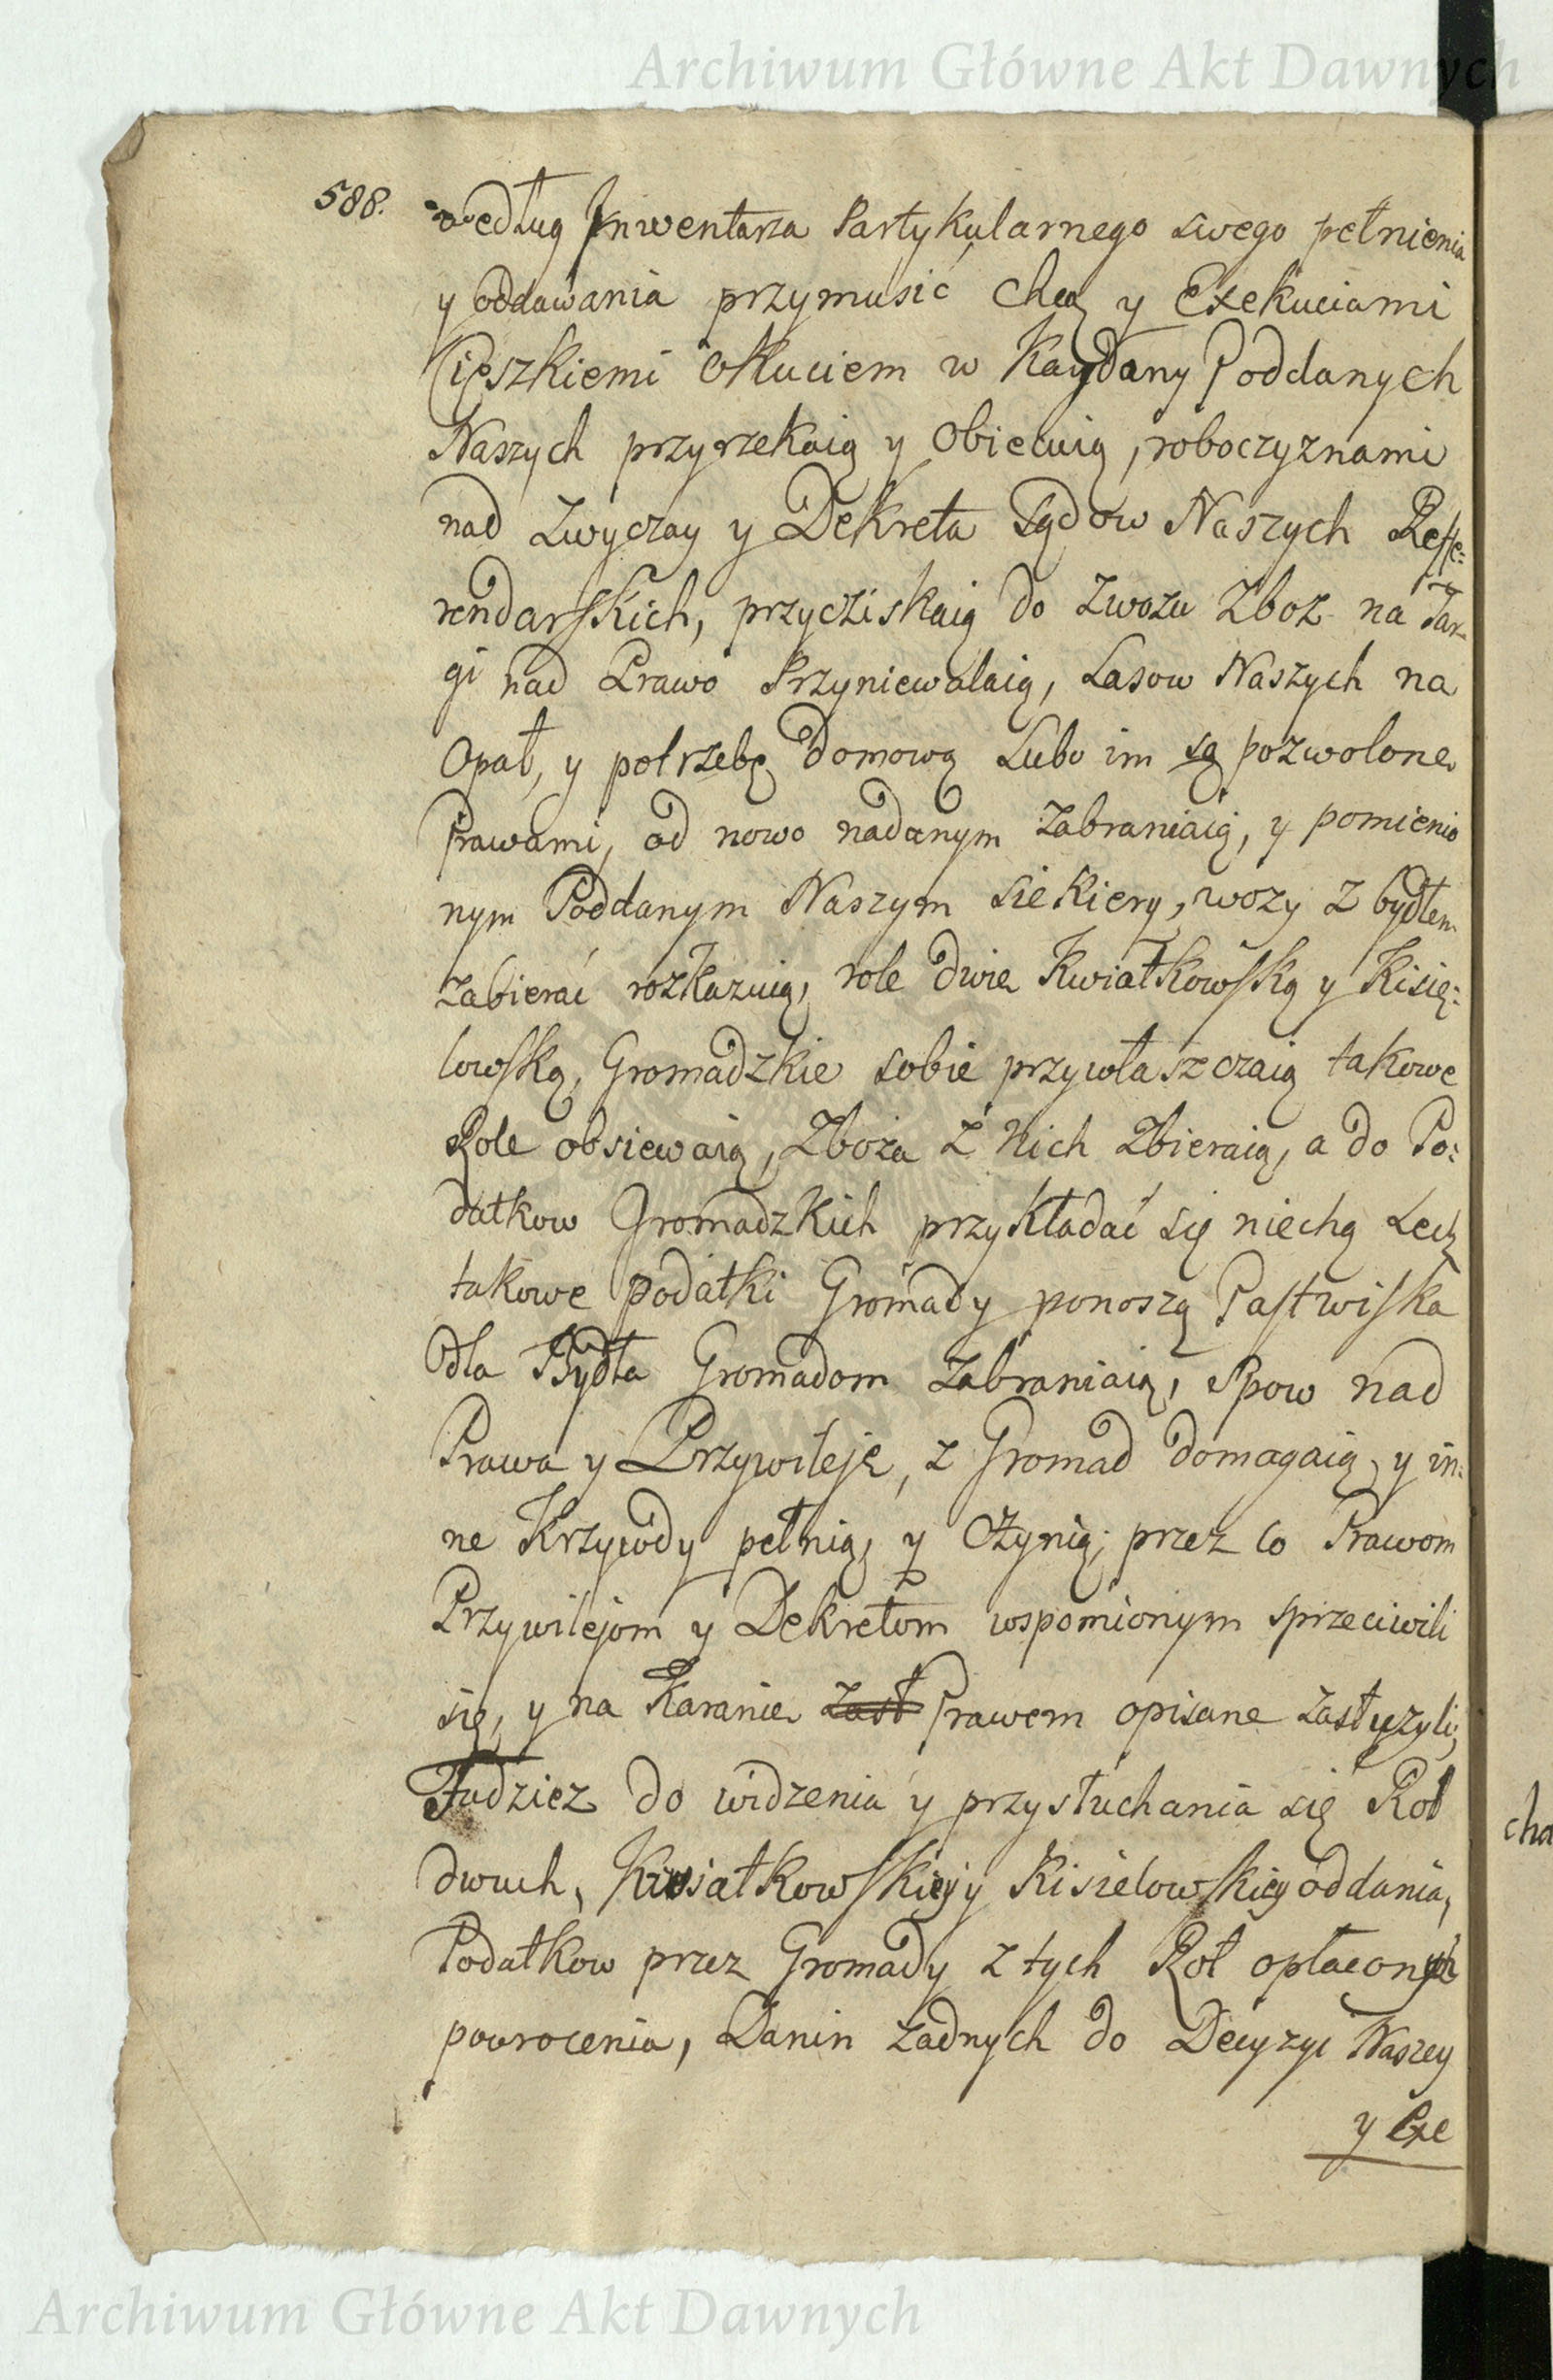 Archiwum Główne Akt Dawnych
588. według Inwentarza Partykularnego swego pełnienia
y oddawania przymusić chcą y Exekuciami
Cięszkiemi okuciem w Kaydany Poddanych
Naszych przyrzekaią y obiecuią, roboczyznami
nad zwyczay y Dekreta Sądow Naszych Refe:
rendarskich, przyciskaią do zwozu Zboz na Tar-
gi nad Prawo Przyniewalaią, Lasow Naszych na
Opał, y potrzebę Domową Lubo im są pozwolone
Prawami, od nowo nadanym zabraniaią, y pomienio
nym Poddanym Naszym siekiery, wozy z bydłem
zabierać rozkazuią, role dwie Kwiatkowską y Kisię:
lowską, Gromadzkie sobie przywłaszczaią takowe
Role obsiewaią, Zboża z Nich Zbieraią, a do Po:
datkow Gromadzkich przykładać się niechą Lecz
takowe podatki Gromady ponoszą Pastwiska
dla Bydła Gromadom zabraniaią, Spow nad
Prawa y Przywileje, z Gromad domagaią, y in:
ne Krzywdy pełnią, y Czynią, przez co Prawom
Przywilejom y Dekretom wspomionym sprzeciwili
się, y na Karanie zasł Prawem opisane zasłużyli,
Tudziez do widzenia y przysłuchania się Rol
dwuch, Kwiatkowskiey y Kisielowskiey oddania,
Podatkow przez Gromady z tych Rol opłaconych
powrocenia, Danin żadnych do Decyzyi Naszey
y Exe
cha
Archiwum Główne Akt Dawnych